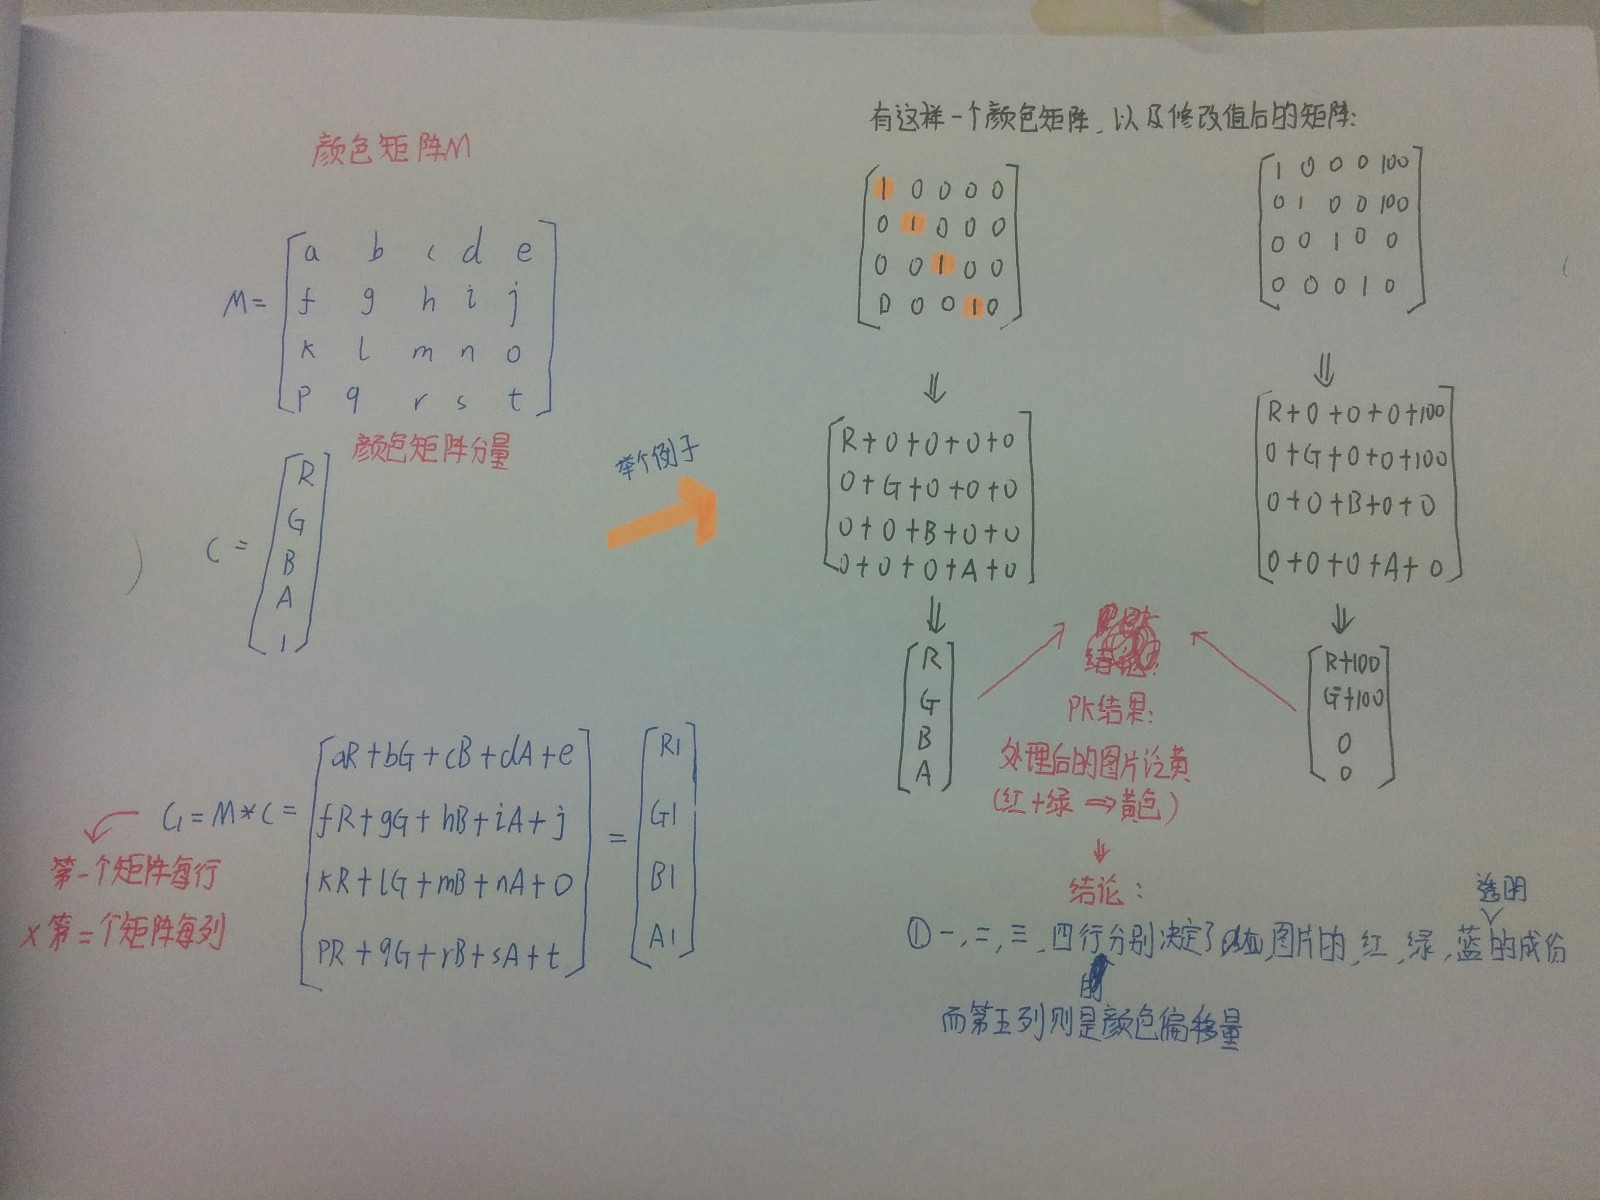 颜色矩阵M
M=
a b c d e
f g h i j
k l m n o
p q r s t
颜色矩阵分量
C=
R
G
B
A
1
C1=M*C=
aR+bG+cB+dA+e
fR+gG+hB+iA+j
kR+lG+mB+nA+o
PR+qG+rB+sA+t
=
R1
G1
B1
A1
第一个矩阵每行
x第二个矩阵每列
举个例子
有这样一个颜色矩阵,以及修改值后的矩阵:
1 0 0 0 0
0 1 0 0 0
0 0 1 0 0
0 0 0 1 0
⇓
R+0+0+0+0
0+G+0+0+0
0+0+B+0+0
0+0+0+A+0
⇓
R
G
B
A
1 0 0 0 100
0 1 0 0 100
0 0 1 0 0
0 0 0 1 0
⇓
R+0+0+0+100
0+G+0+0+100
0+0+B+0+0
0+0+0+A+0
⇓
R+100
G+100
0
0
PK结果:
处理后的图片泛黄
(红+绿⇒黄色)
结论:
透明
①一,二,三,四行分别决定了图片的,红,绿,蓝的成份
的
而第五列则是颜色偏移量